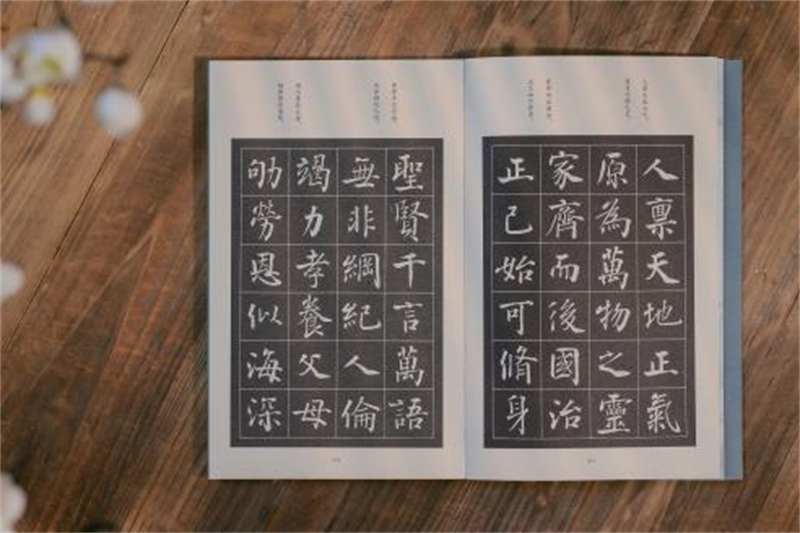 人禀天地正氣
原為萬物之靈
家齊而後國治
正己始可脩身
聖賢千言萬語
無非綱紀人倫
竭力孝養父母
劬勞恩似海深